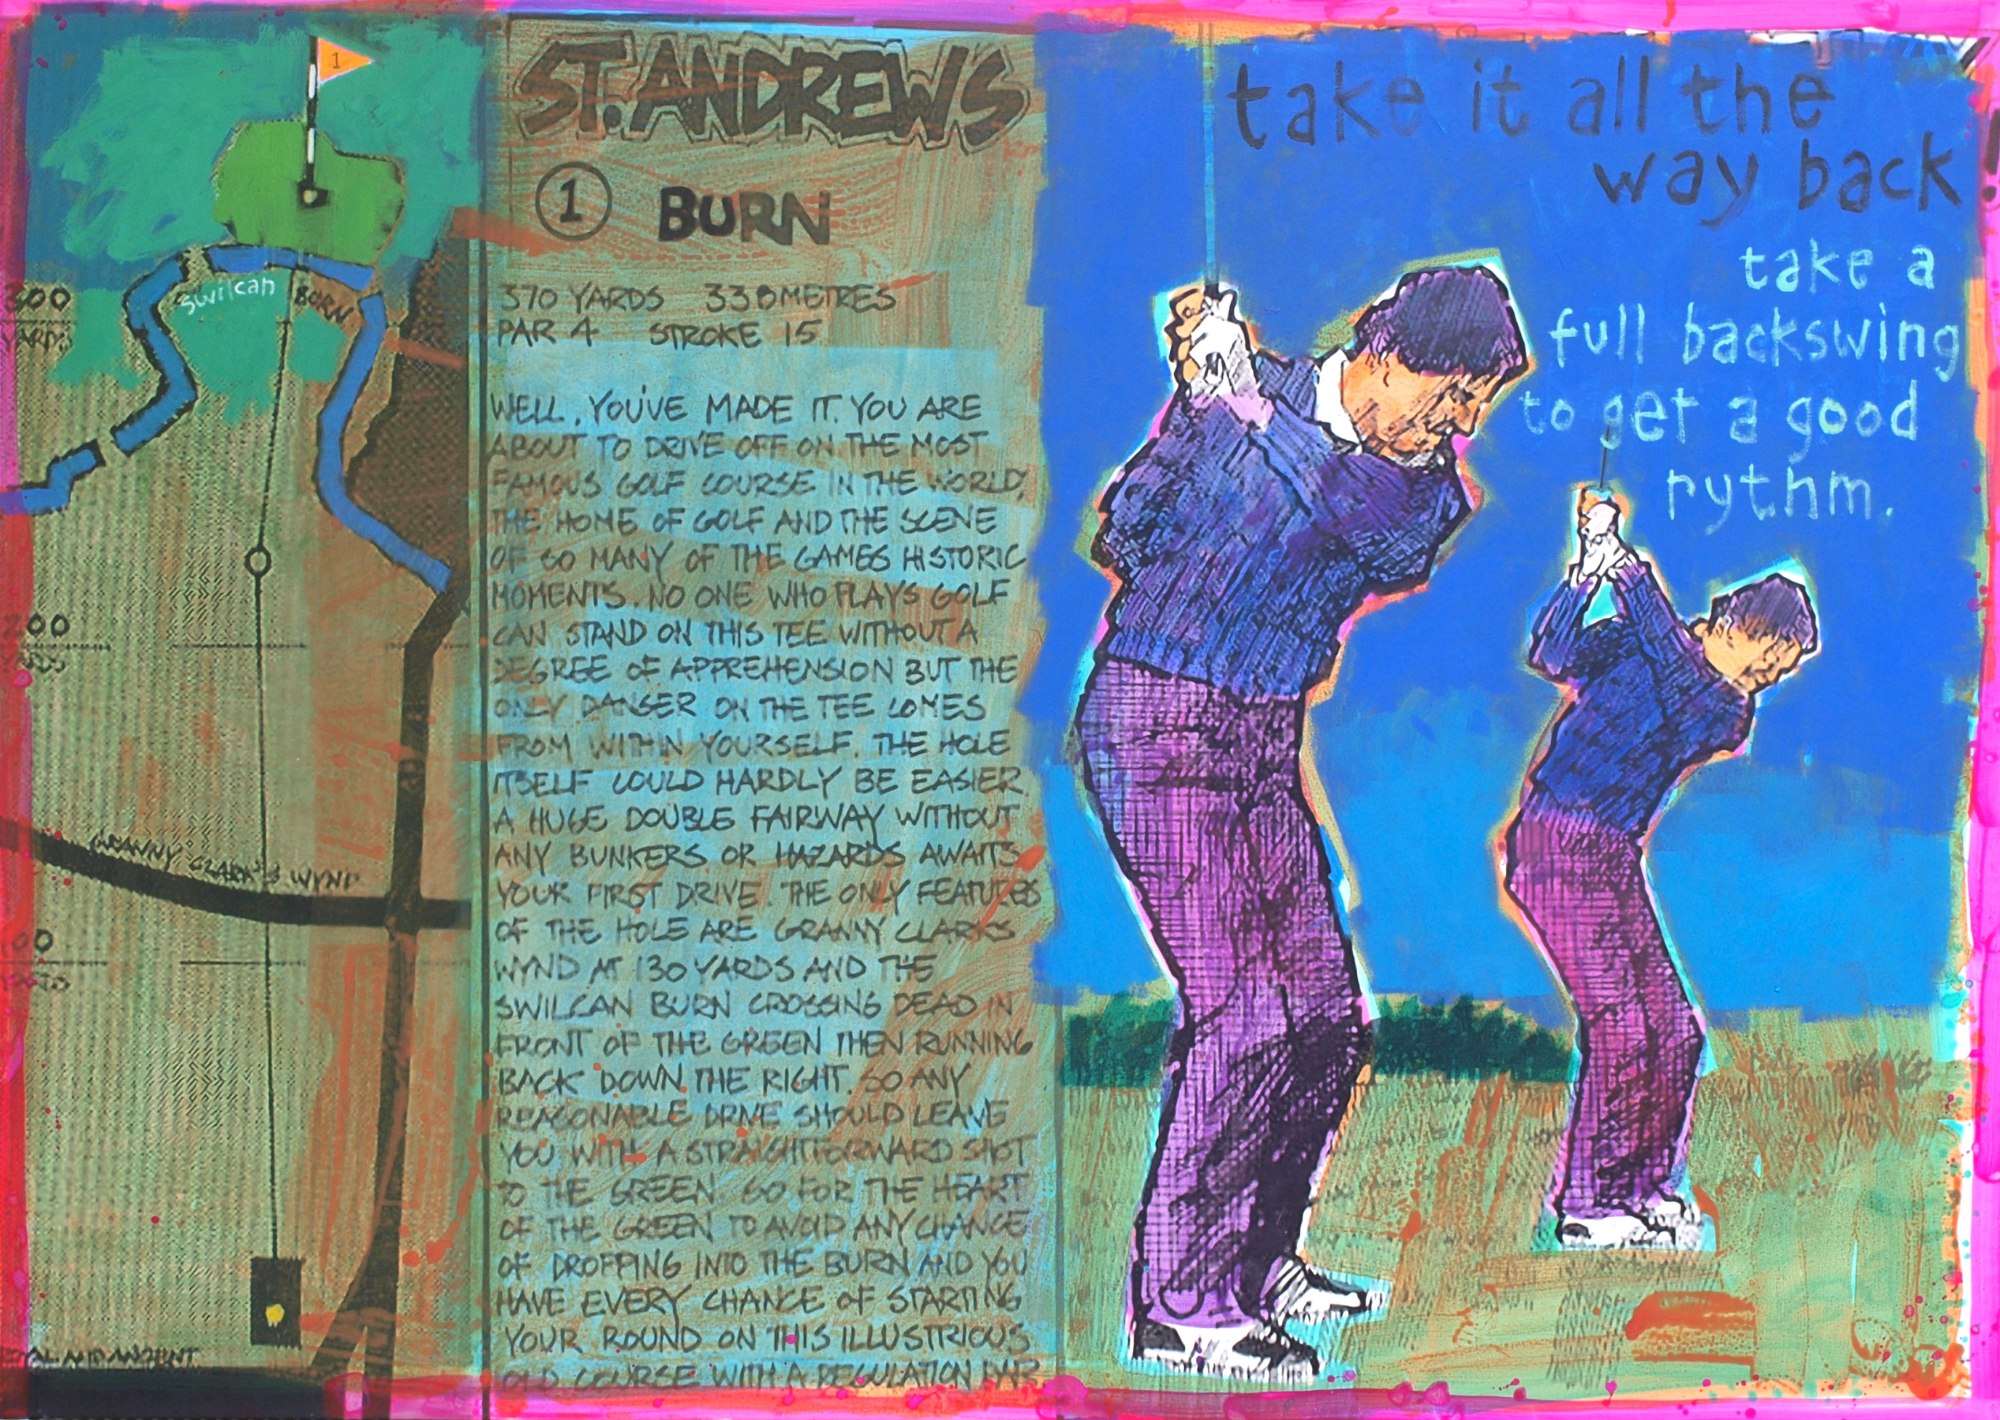 1
swilcan BURN
300
YARDS
200
YARDS
GRANNY CLARK'S WYND
100
YARDS
ROYAL AND ANCIENT
ST. ANDREWS
1 BURN
370 YARDS 338 METRES
PAR 4 STROKE 15
WELL, YOU'VE MADE IT. YOU ARE
ABOUT TO DRIVE OFF ON THE MOST
FAMOUS GOLF COURSE IN THE WORLD,
THE HOME OF GOLF AND THE SCENE
OF SO MANY OF THE GAMES HISTORIC
MOMENTS. NO ONE WHO PLAYS GOLF
CAN STAND ON THIS TEE WITHOUT A
DEGREE OF APPREHENSION BUT THE
ONLY DANGER ON THE TEE COMES
FROM WITHIN YOURSELF. THE HOLE
ITSELF COULD HARDLY BE EASIER
A HUGE DOUBLE FAIRWAY WITHOUT
ANY BUNKERS OR HAZARDS AWAITS
YOUR FIRST DRIVE. THE ONLY FEATURES
OF THE HOLE ARE GRANNY CLARKS
WYND AT 130 YARDS AND THE
SWILCAN BURN CROSSING DEAD IN
FRONT OF THE GREEN THEN RUNNING
BACK DOWN THE RIGHT. SO ANY
REASONABLE DRIVE SHOULD LEAVE
YOU WITH A STRAIGHTFORWARD SHOT
TO THE GREEN. GO FOR THE HEART
OF THE GREEN TO AVOID ANY CHANCE
OF DROPPING INTO THE BURN AND YOU
HAVE EVERY CHANCE OF STARTING
YOUR ROUND ON THIS ILLUSTRIOUS
OLD COURSE WITH A REGULATION PAR
take it all the
way back!
take a
full backswing
to get a good
rythm.